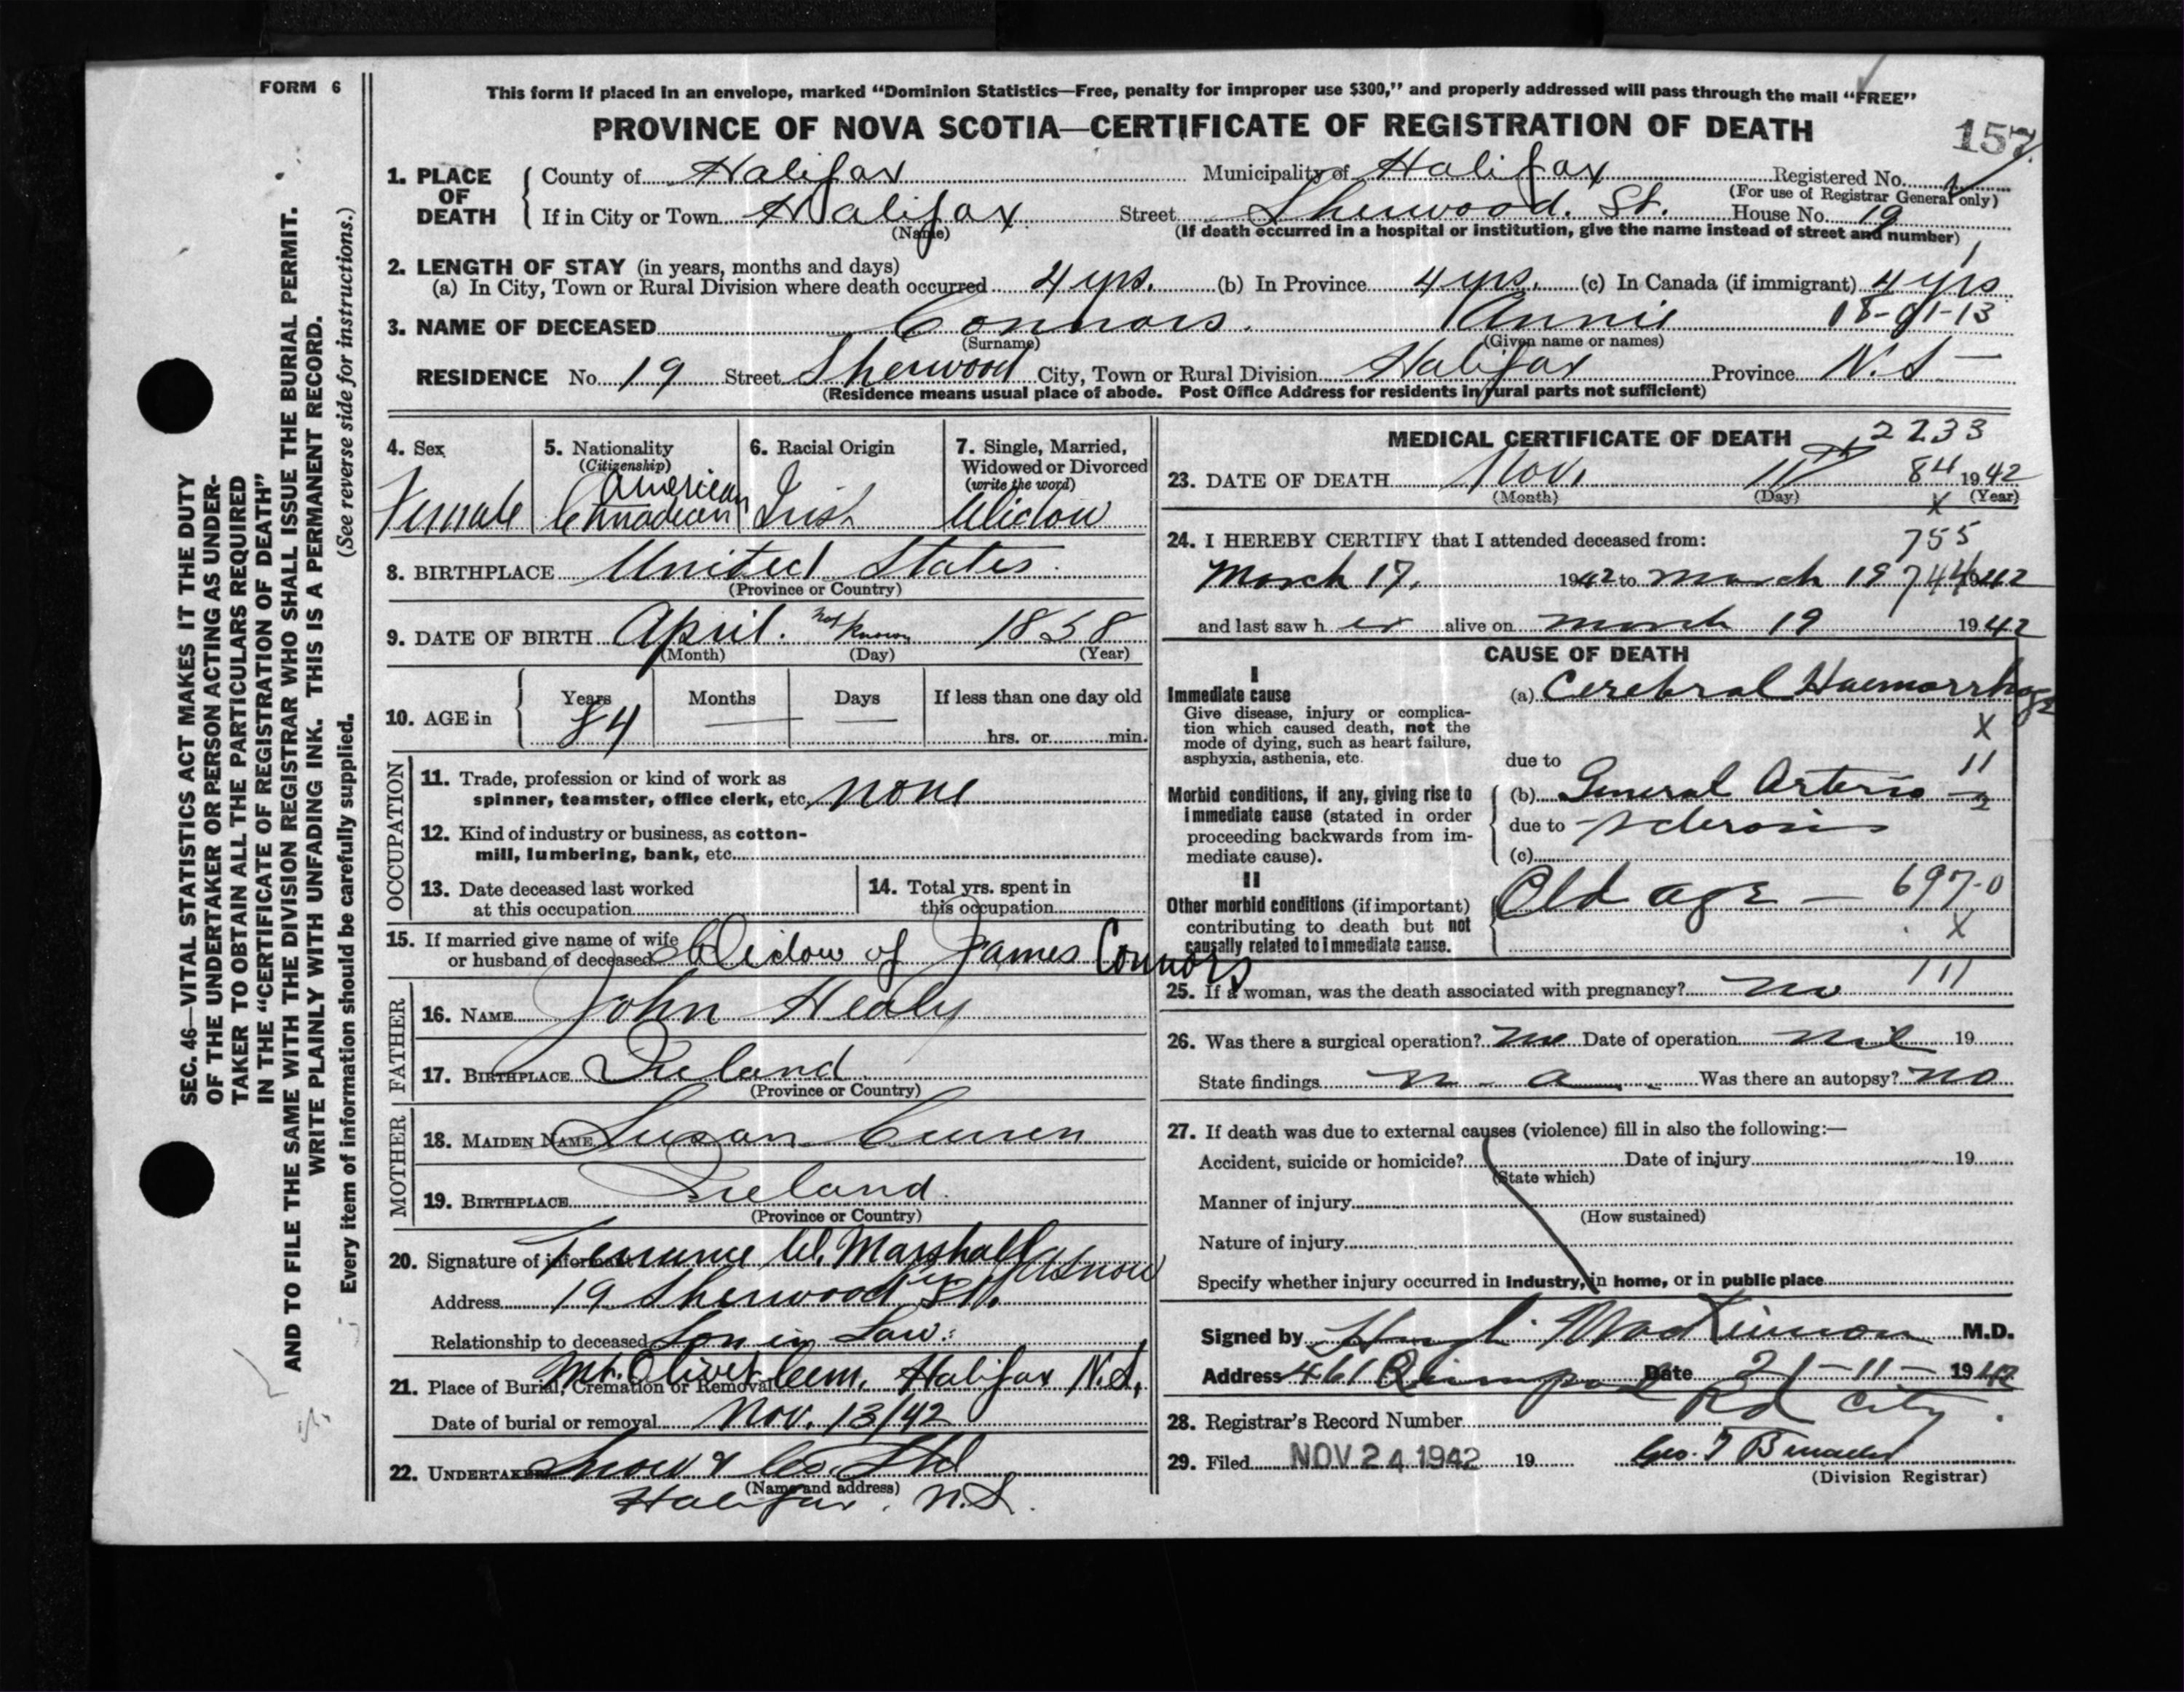 FORM 6
SEC. 46—VITAL STATISTICS ACT MAKES IT THE DUTY
OF THE UNDERTAKER OR PERSON ACTING AS UNDER-
TAKER TO OBTAIN ALL THE PARTICULARS REQUIRED
IN THE “CERTIFICATE OF REGISTRATION OF DEATH”
AND TO FILE THE SAME WITH THE DIVISION REGISTRAR WHO SHALL ISSUE THE BURIAL PERMIT.
WRITE PLAINLY WITH UNFADING INK. THIS IS A PERMANENT RECORD.
Every item of information should be carefully supplied. (See reverse side for instructions.)
This form if placed in an envelope, marked “Dominion Statistics—Free, penalty for improper use $300,” and properly addressed will pass through the mail “FREE”
PROVINCE OF NOVA SCOTIA—CERTIFICATE OF REGISTRATION OF DEATH
157
1. PLACE OF DEATH County of Halifax Municipality of Halifax Registered No.
(For use of Registrar General only)
If in City or Town Halifax Street Sherwood. St. House No. 19
(Name) (If death occurred in a hospital or institution, give the name instead of street and number)
2. LENGTH OF STAY (in years, months and days)
(a) In City, Town or Rural Division where death occurred 4 yrs. (b) In Province 4 yrs. (c) In Canada (if immigrant) 4 yrs
3. NAME OF DECEASED Connors. Annie 18-01-13
(Surname) (Given name or names)
RESIDENCE No. 19 Street Sherwood City, Town or Rural Division Halifax Province N.S—
(Residence means usual place of abode. Post Office Address for residents in rural parts not sufficient)
4. Sex 5. Nationality 6. Racial Origin 7. Single, Married,
(Citizenship) Widowed or Divorced
(write the word)
American
Female Canadian Irish Widow
8. BIRTHPLACE United States.
(Province or Country)
9. DATE OF BIRTH April. not known 1858
(Month) (Day) (Year)
10. AGE in Years Months Days If less than one day old
84 — — hrs. or min.
OCCUPATION
11. Trade, profession or kind of work as
spinner, teamster, office clerk, etc. none
12. Kind of industry or business, as cotton-
mill, lumbering, bank, etc.
13. Date deceased last worked 14. Total yrs. spent in
at this occupation this occupation
15. If married give name of wife
or husband of deceased Widow of James Connors
FATHER
16. NAME John Healy
17. BIRTHPLACE Ireland
(Province or Country)
MOTHER
18. MAIDEN NAME Susan
19. BIRTHPLACE Ireland.
(Province or Country)
20. Signature of informant W. Marshall Snow
Address 19 Sherwood St.
Relationship to deceased Son in Law.
21. Place of Burial, Cremation or Removal Mt. Olivet Cem. Halifax N.S.
Date of burial or removal Nov. 13/42
22. UNDERTAKER Snow & Co. Ltd
(Name and address)
Halifax. N.S.
MEDICAL CERTIFICATE OF DEATH 2233
23. DATE OF DEATH Nov. 11 84 1942
(Month) (Day) X (Year)
24. I HEREBY CERTIFY that I attended deceased from: 755
March 17, 1942 to March 19 744 1942
and last saw her alive on March 19 1942
CAUSE OF DEATH
I
Immediate cause (a) Cerebral Haemorrhage
Give disease, injury or complica-
tion which caused death, not the X
mode of dying, such as heart failure,
asphyxia, asthenia, etc. due to 11
Morbid conditions, if any, giving rise to (b) General Arterio — 2
immediate cause (stated in order due to -sclerosis
proceeding backwards from im-
mediate cause). (c)
II
Other morbid conditions (if important) Old age — 697-0
contributing to death but not X
causally related to immediate cause.
25. If a woman, was the death associated with pregnancy? no 111
26. Was there a surgical operation? no Date of operation nil 19
State findings Was there an autopsy? no
27. If death was due to external causes (violence) fill in also the following:—
Accident, suicide or homicide? Date of injury 19
(State which)
Manner of injury
(How sustained)
Nature of injury
Specify whether injury occurred in industry, in home, or in public place
Signed by Hugh MacKinnon M.D.
Address 461 Quinpool Date 21-11- 1942
Rd City.
28. Registrar's Record Number
29. Filed NOV 24 1942 19 Geo. T
(Division Registrar)